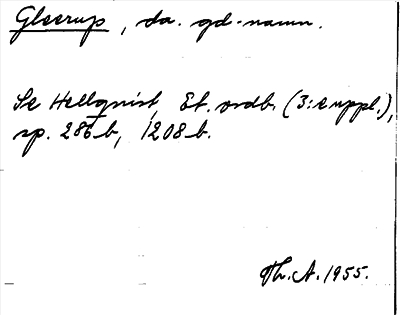 Gleerup, da. gd-namn.
Se Hellquist, Et. ordb. (3:e uppl.),
sp. 286 b, 1208 b.
Th. A. 1955.